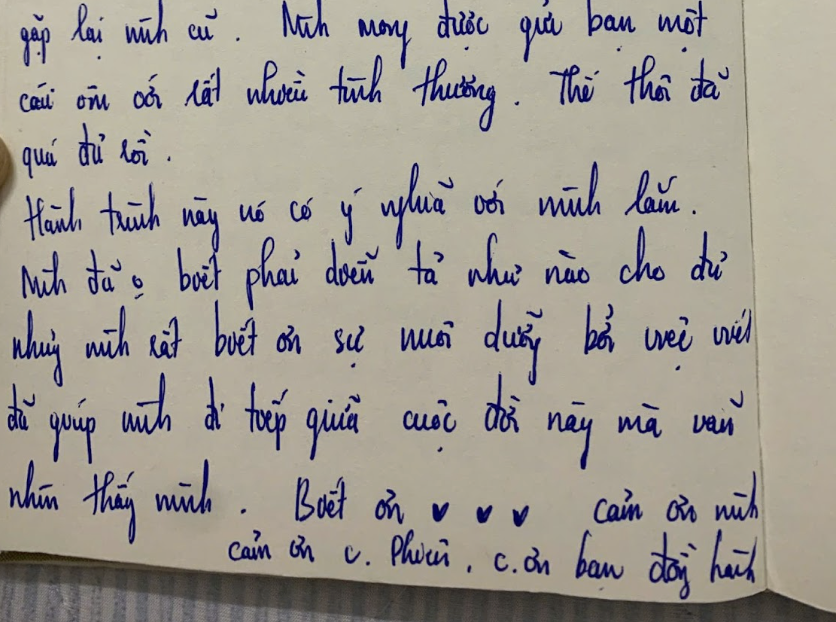 gặp lại mình cũ. Mình mong được gửi bạn một
cái ôm với rất nhiều tình thương. Thế thôi đã
quá đủ rồi.
Hành trình này nó có ý nghĩa với mình lắm.
Mình đã o biết phải diễn tả như nào cho đủ
nhưng mình rất biết ơn sự nuôi dưỡng bởi việc viết
đã giúp mình đi tiếp giữa cuộc đời này mà vẫn
nhìn thấy mình. Biết ơn ♥ ♥ ♥ cảm ơn mình
cảm ơn c. c.ơn bạn đồng hành